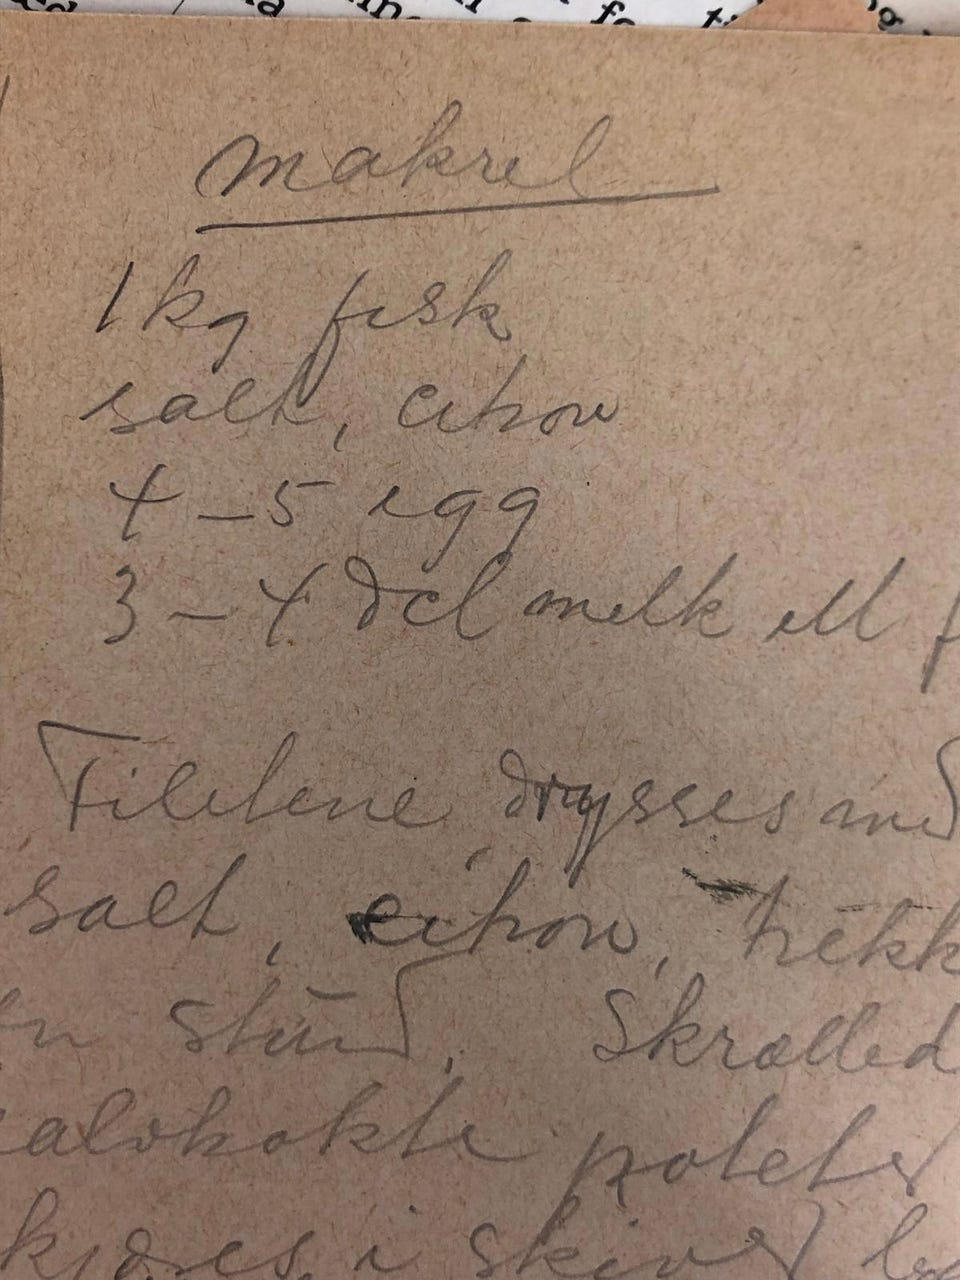 makrel
1 kg fisk
salt, citron
4 – 5 egg
3 – 4 dcl melk ell f
Filetene drysses med
salt, citron, trekk
en stund. Skrælled
alvkokte poteter
skjæres i skiver